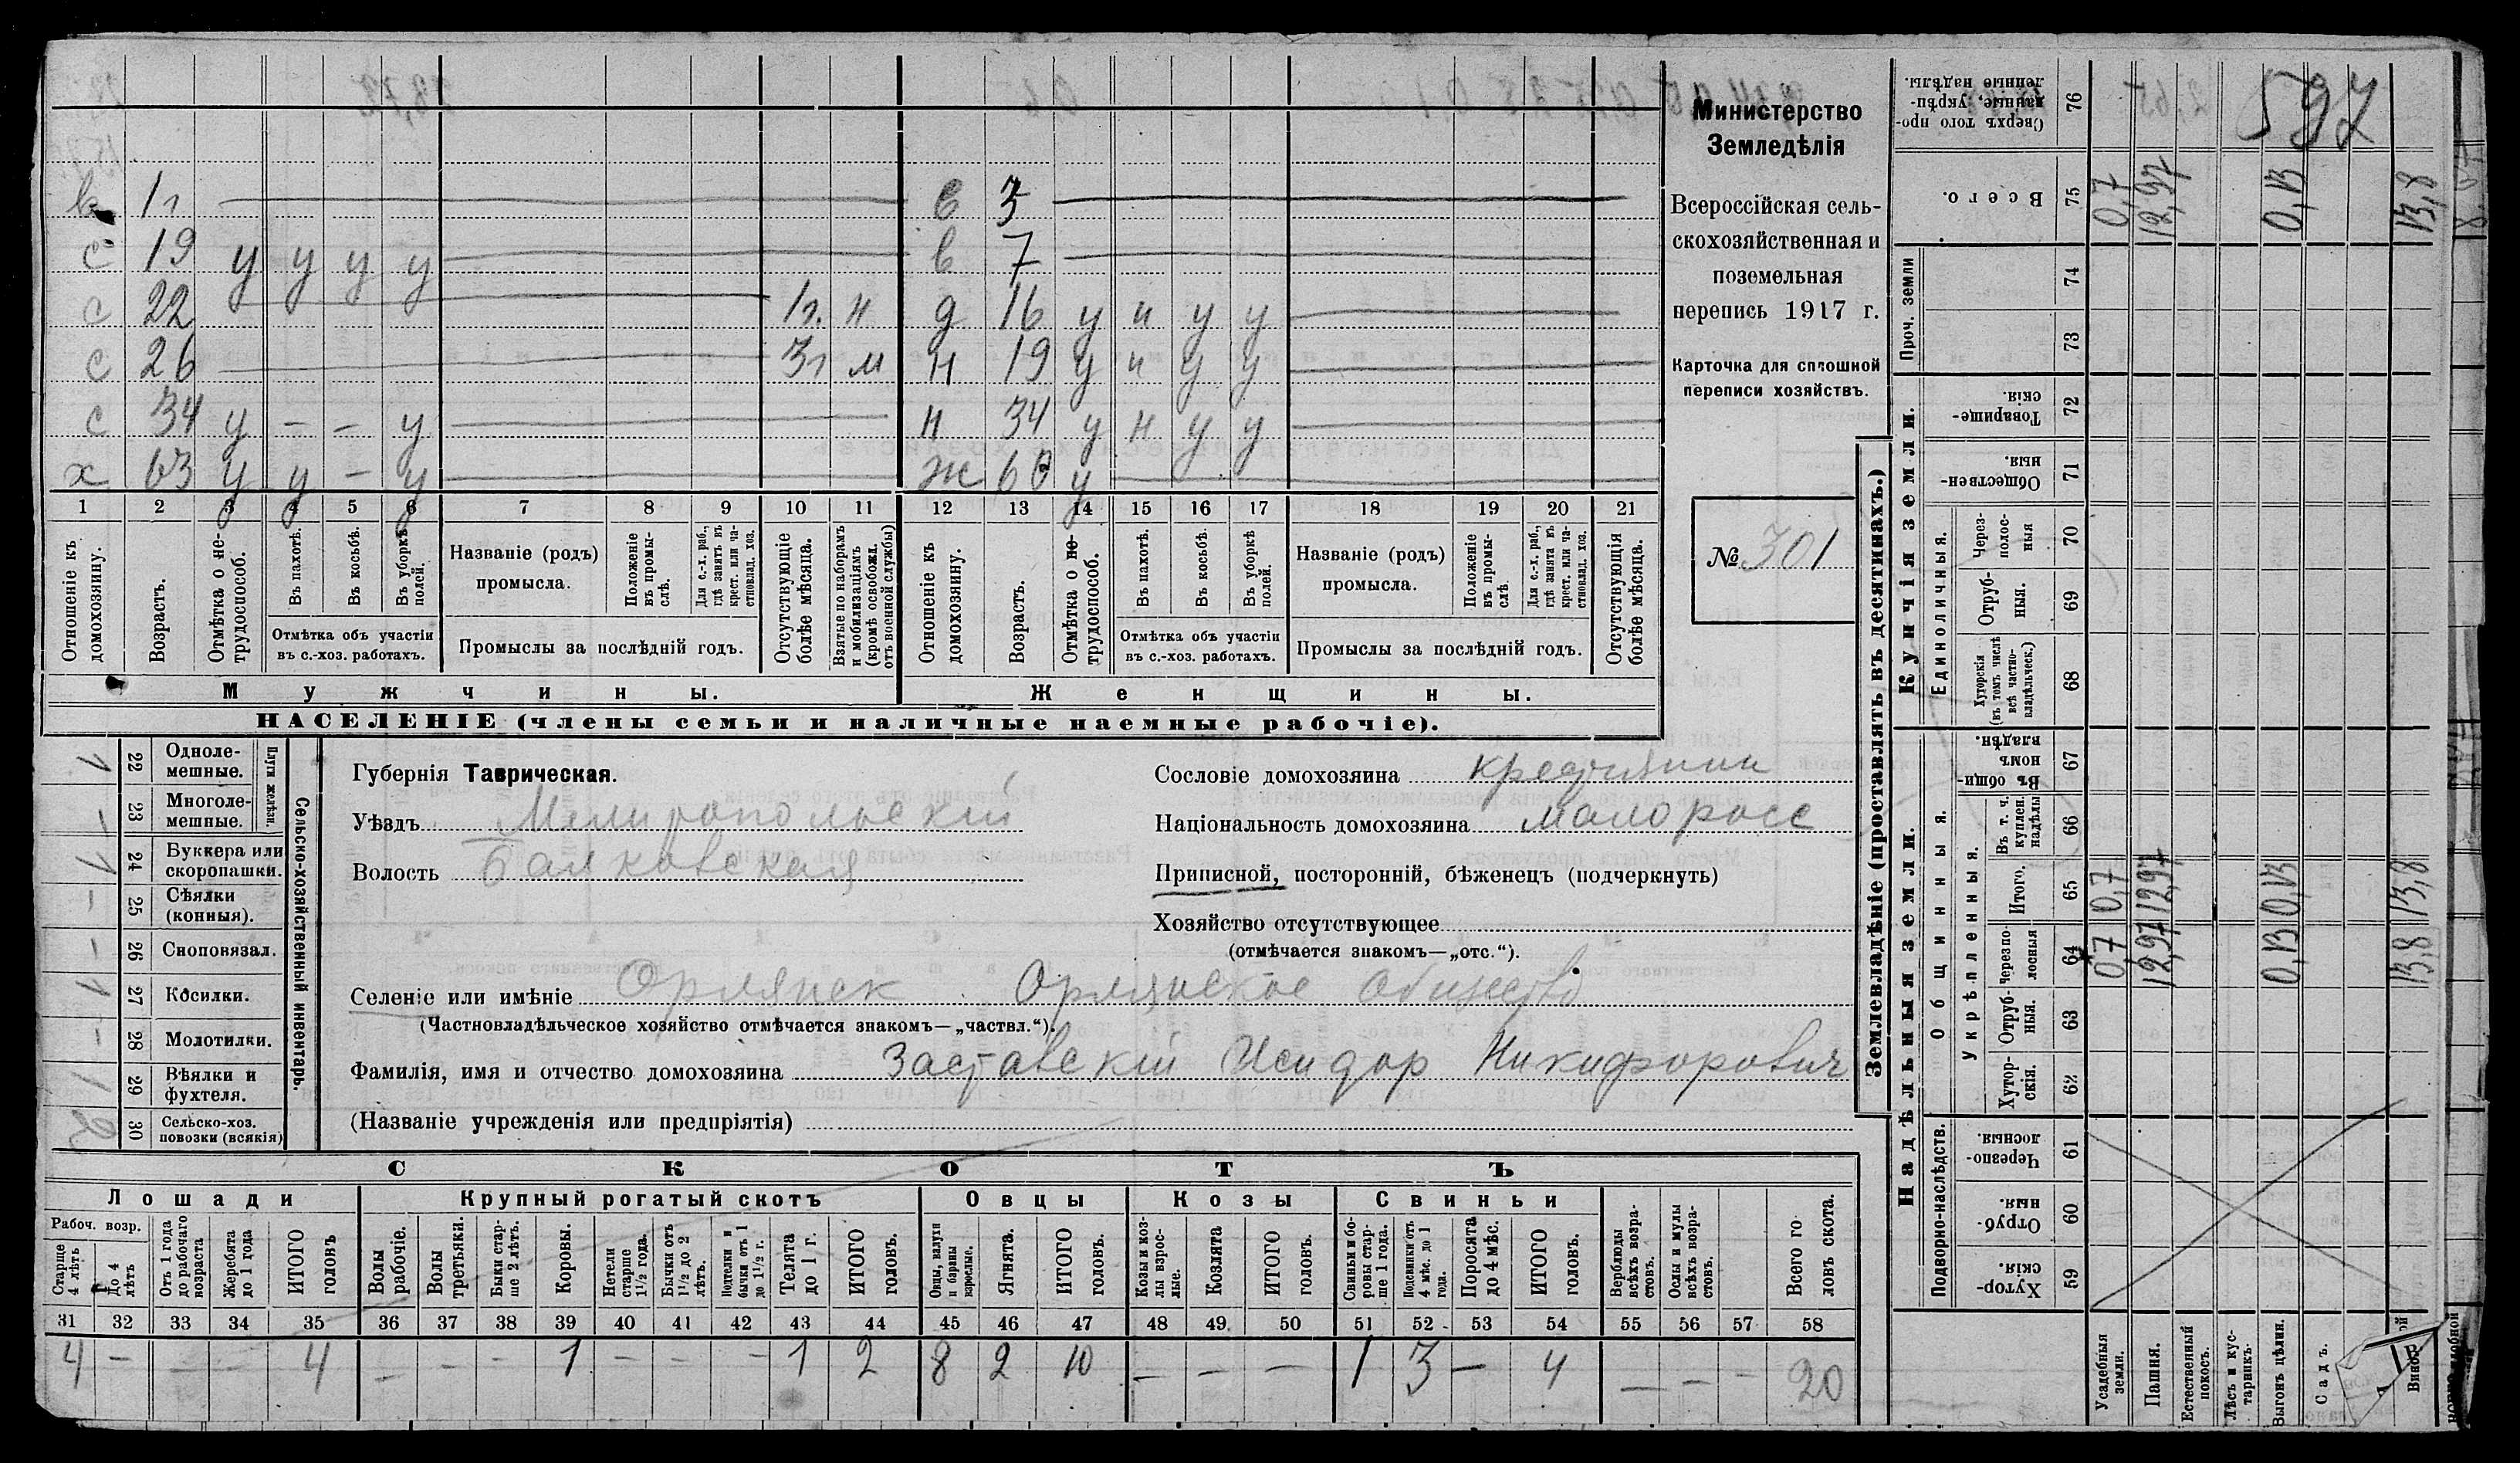 597
Министерство
Земледѣлія
Всероссійская сель-
скохозяйственная и
поземельная
перепись 1917 г.
Карточка для сплошной
переписи хозяйствъ.
№ 301
1г. в 3
с 19 у у у у в 7
с 22 1г. н д 16 у н у у
с 26 3г м н 19 у н у у
с 34 у – – у н 34 у н у у
х 63 у у – у ж 60 у
1 2 3 4 5 6 7 8 9 10 11 12 13 14 15 16 17 18 19 20 21
Отношеніе къ домохозяину.
Возрастъ.
Отмѣтка о не-трудоспособ.
Въ пахотѣ.
Въ косьбѣ.
Въ уборкѣ полей.
Отмѣтка объ участіи
въ с.-хоз. работахъ.
Названіе (родъ)
промысла.
Положеніе въ промы-слѣ.
Для с.-х. раб., гдѣ занятъ въ крест. или ча-стновлад. хоз.
Промыслы за послѣдній годъ.
Отсутствующіе болѣе мѣсяца.
Взятые по наборамъ и мобилизаціямъ (кромѣ освобожд. отъ военной службы)
Отношеніе къ домохозяину.
Возрастъ.
Отмѣтка о не-трудоспособ.
Въ пахотѣ.
Въ косьбѣ.
Въ уборкѣ полей.
Отмѣтка объ участіи
въ с.-хоз. работахъ.
Названіе (родъ)
промысла.
Положеніе въ промы-слѣ.
Для с.-х. раб., гдѣ занята въ крест. или ча-стновлад. хоз.
Промыслы за послѣдній годъ.
Отсутствующія болѣе мѣсяца.
Мужчины. Женщины.
НАСЕЛЕНІЕ (члены семьи и наличные наемные рабочіе).
Сельско-хозяйственный инвентарь.
Плуги желѣзн.
22 Одноле-мешные. 1
23 Многоле-мешные. –
24 Буккера или скоропашки. 1
25 Сѣялки (конныя). –
26 Сноповязал. –
27 Косилки. 1
28 Молотилки. –
29 Вѣялки и фухтеля. 1
30 Сельско-хоз. повозки (всякія) 2
Губернія Таврическая.
Уѣздъ Мелитопольскій
Волость Балковская
Сословіе домохозяина крестьянин
Національность домохозяина малоросс
Приписной, посторонній, бѣженецъ (подчеркнуть)
Хозяйство отсутствующее
(отмѣчается знакомъ—„отс.“).
Селеніе или имѣніе Орлянск Орлянское общество
(Частновладѣльческое хозяйство отмѣчается знакомъ—„частвл.“).
Фамилія, имя и отчество домохозяина Заставскій Исидор Никифорович
(Названіе учрежденія или предпріятія)
СКОТЪ
Лошади Крупный рогатый скотъ Овцы Козы Свиньи
Рабоч. возр.
Старше 4 лѣтъ
До 4 лѣтъ
Отъ 1 года до рабочаго возраста
Жеребята до 1 года
ИТОГО головъ
Волы рабочіе.
Волы третьяки.
Быки стар-ше 2 лѣтъ.
Коровы.
Нетели старше 1½ года.
Бычки отъ 1½ до 2 лѣтъ.
Подтелки и бычки отъ 1 до 1½ г.
Телята до 1 г.
ИТОГО головъ.
Овцы, валухи и бараны взрослые.
Ягнята.
ИТОГО головъ.
Козы и коз-лы взрос-лые.
Козлята
ИТОГО головъ.
Свиньи и бо-ровы стар-ше 1 года.
Подсвинки отъ 4 мѣс. до 1 года.
Поросята до 4 мѣс.
ИТОГО головъ.
Верблюды всѣхъ возра-стовъ.
Ослы и мулы всѣхъ возра-стовъ.
Всего го ловъ скота.
31 32 33 34 35 36 37 38 39 40 41 42 43 44 45 46 47 48 49 50 51 52 53 54 55 56 57 58
4 – – – 4 – – – 1 – – – 1 2 8 2 10 – – – 1 3 – 4 – – – 20
Землевладѣніе (проставлять въ десятинахъ.)
Надѣльныя земли. Купчія земли. Проч. земли
Подворно-наслѣдств. Общинныя. Укрѣпленныя. Единоличныя.
Сверхъ того про-данные, укрѣп-ленные надѣлы. 76
Всего. 75
74
73
Товарище-скія. 72
Обществен-ныя. 71
Через-полос-ныя 70
Отруб-ныя. 69
Хуторскія (въ томъ числѣ всѣ частно-владѣльческ.) 68
Въ общин-номъ владѣн. 67
Въ т. ч. куплен. надѣлы 66
Итого. 65
Черезпо-лосныя 64
Отруб-ныя. 63
Хутор-скія. 62
Черезпо-лосныя. 61
Отруб-ныя. 60
Хутор-скія. 59
Усадебныя земли. 0,7 0,7 0,7
Пашня. 12,97 12,97 12,97
Естественный покосъ.
Лѣсъ и кус-тарникъ.
Выгонъ цѣлин. 0,13 0,13 0,13
Садъ.
13,8 13,8 13,8